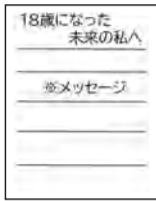 18歳になった
未来の私へ
※メッセージ